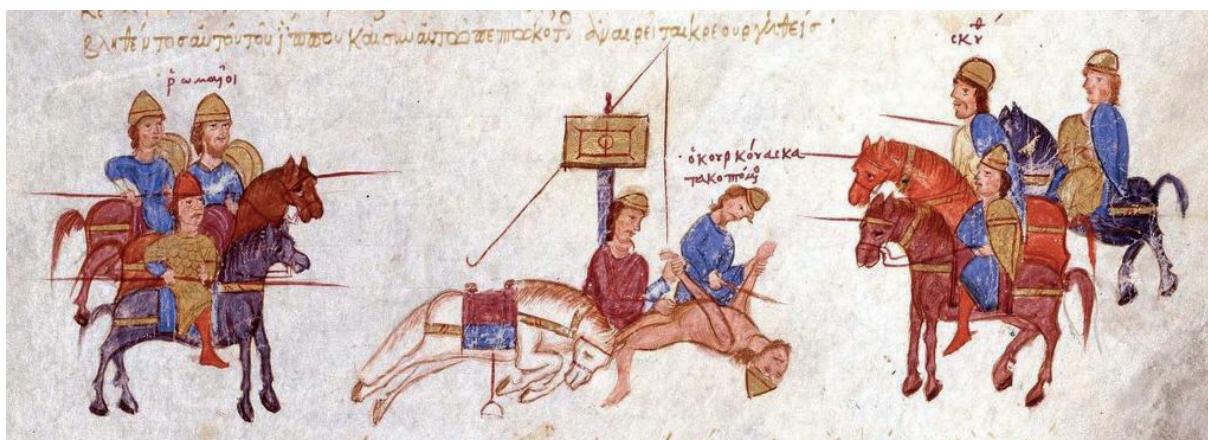 βληθέντος αὐτοῦ τοῦ ἵππου καὶ σὺν αὐτῶ πεπτωκότ ἀναιρεῖται κρεουργηθείς·
ῥωμαῖοι
σκύθ
ὁ κουρκούας κα
τακοπτόμ